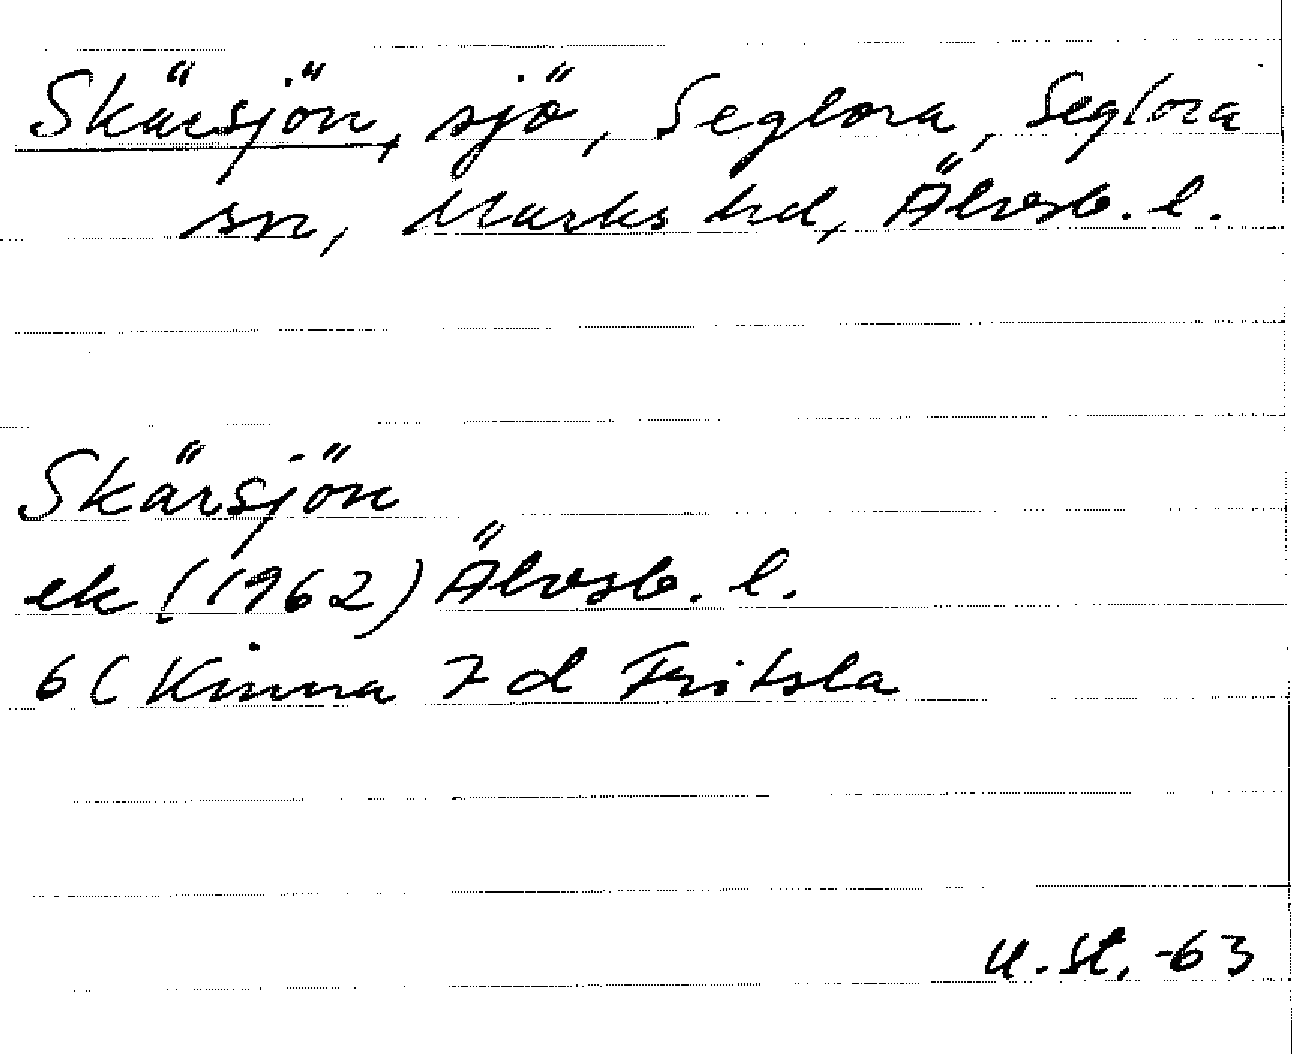 Skärsjön, sjö, Seglora, Seglora
sn, Marks hd, Älvsb. l.
Skärsjön
ek (1962) Älvsb. l.
6C Kinna 7d Fritsla
U. St. -63